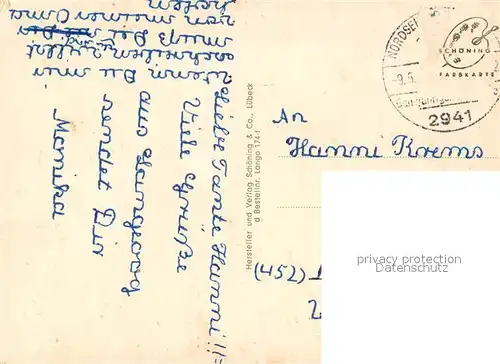 Liebe Tante Hanni!!=
Viele Grüße
aus Langeoog
sendet Dir
Monika
Wenn Du nur
muß Bei
von meiner Oma
holen
Hersteller und Verlag Schöning & Co., Lübeck
d Bestellnr. Lango 174-f
NORDSEE
-9.6.
2941
SCHÖNING
FARBKARTE
An
Hanni Krems
(452)
privacy protection
Datenschutz